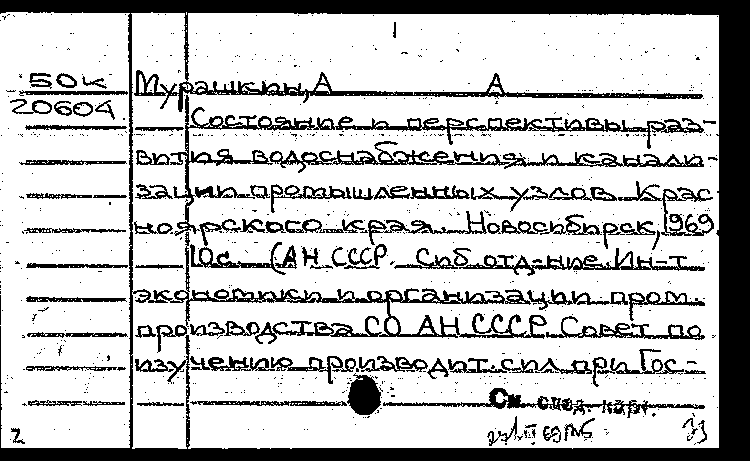 1
50к Мурашкин, А А
20604 Состояние и перспективы раз-
вития водоснабжения и канали-
зации промышленных узлов Крас-
ноярского края. Новосибирск, 1969.
10с. (АН СССР. Сиб. отд-ние. Ин-т
экономики и организации пром.
производства СО АН СССР. Совет по
изучению производит. сил при Гос-
См. след. карт.
2 33